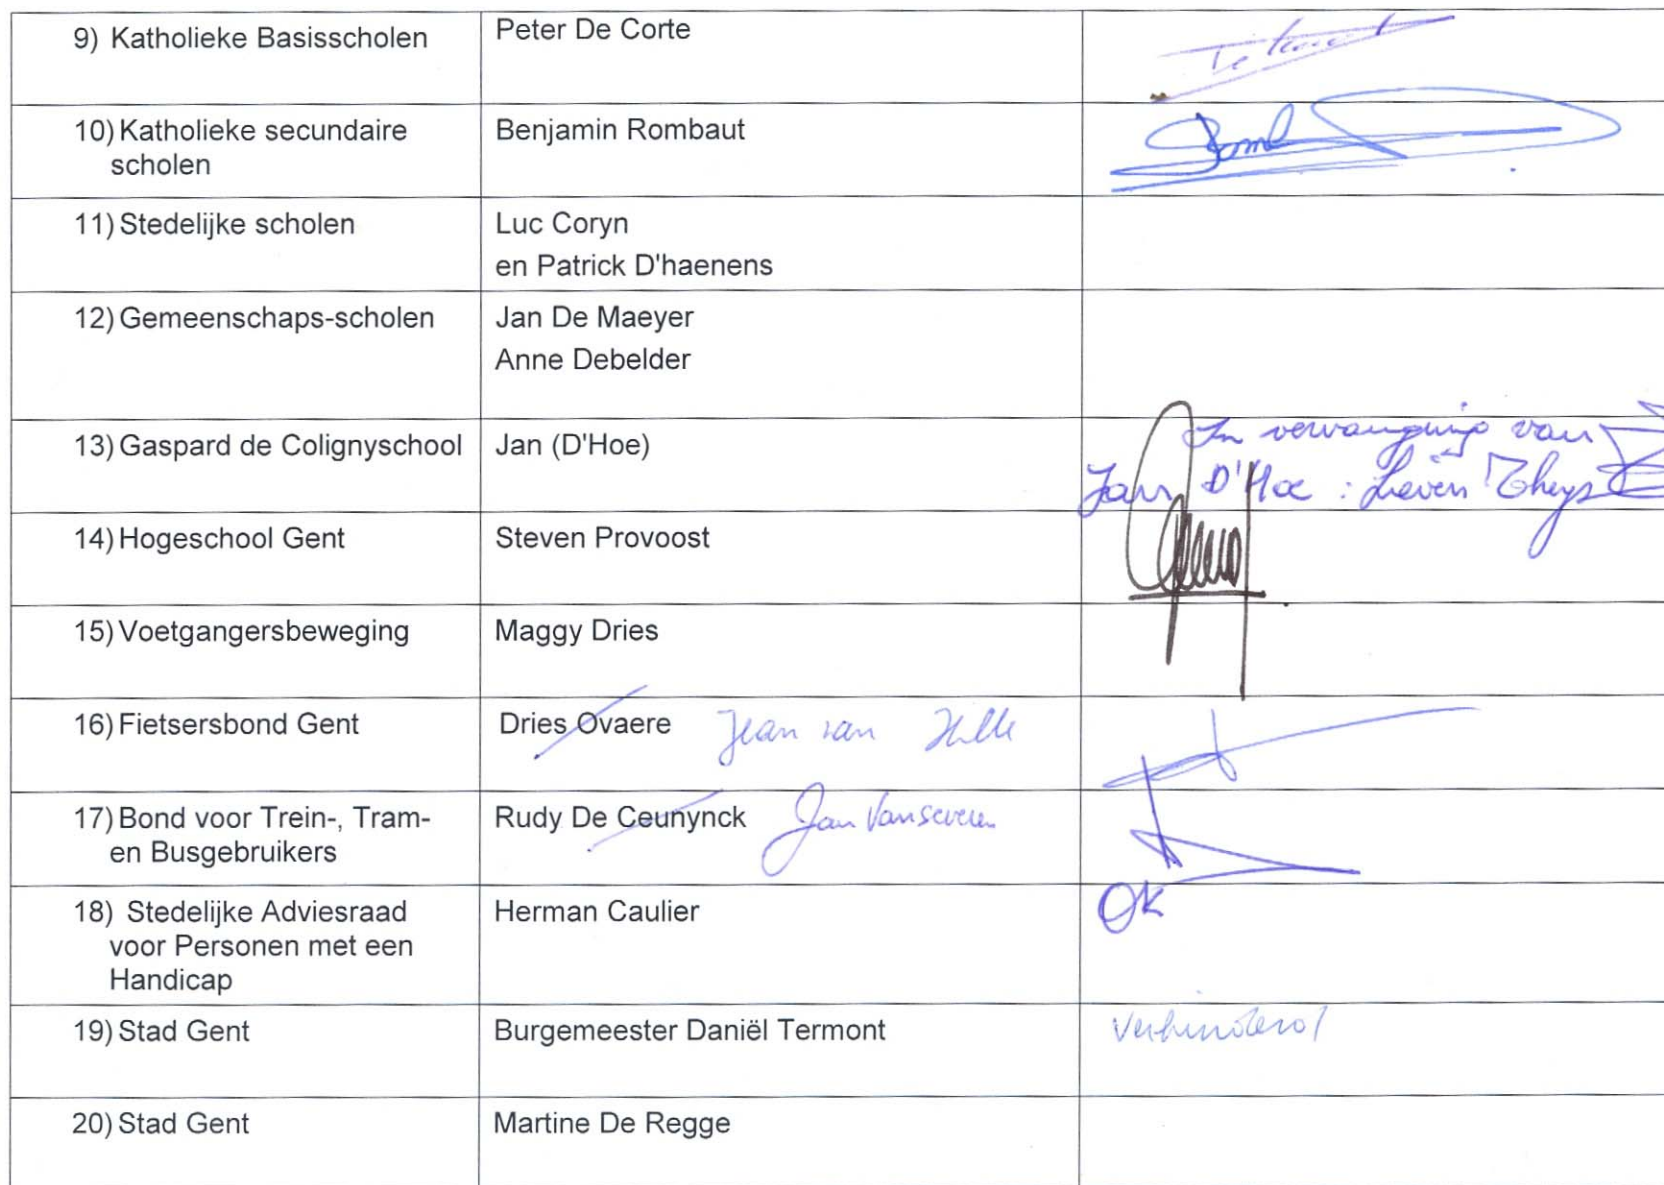 9) Katholieke Basisscholen
Peter De Corte
10) Katholieke secundaire
scholen
Benjamin Rombaut
11) Stedelijke scholen
Luc Coryn
en Patrick D'haenens
12) Gemeenschaps-scholen
Jan De Maeyer
Anne Debelder
13) Gaspard de Colignyschool
Jan (D'Hoe)
In vervanging van
Jan D'Hoe : Lieven Theys
14) Hogeschool Gent
Steven Provoost
15) Voetgangersbeweging
Maggy Dries
16) Fietsersbond Gent
Dries Ovaere Jean van Hille
17) Bond voor Trein-, Tram-
en Busgebruikers
Rudy De Ceunynck Jan Vanseveren
18) Stedelijke Adviesraad
voor Personen met een
Handicap
Herman Caulier
OK
19) Stad Gent
Burgemeester Daniël Termont
Verhinderd
20) Stad Gent
Martine De Regge